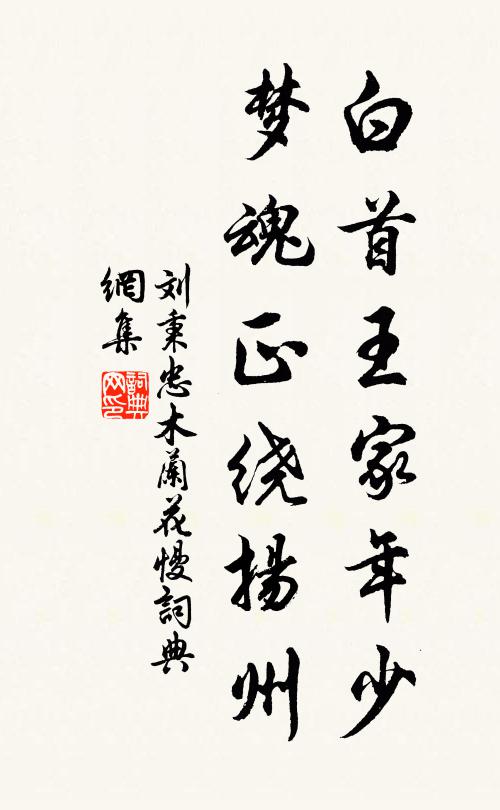 白首王家年少
梦魂正绕揚州
刘秉忠木蘭花慢詞典
網集
詞典
网印